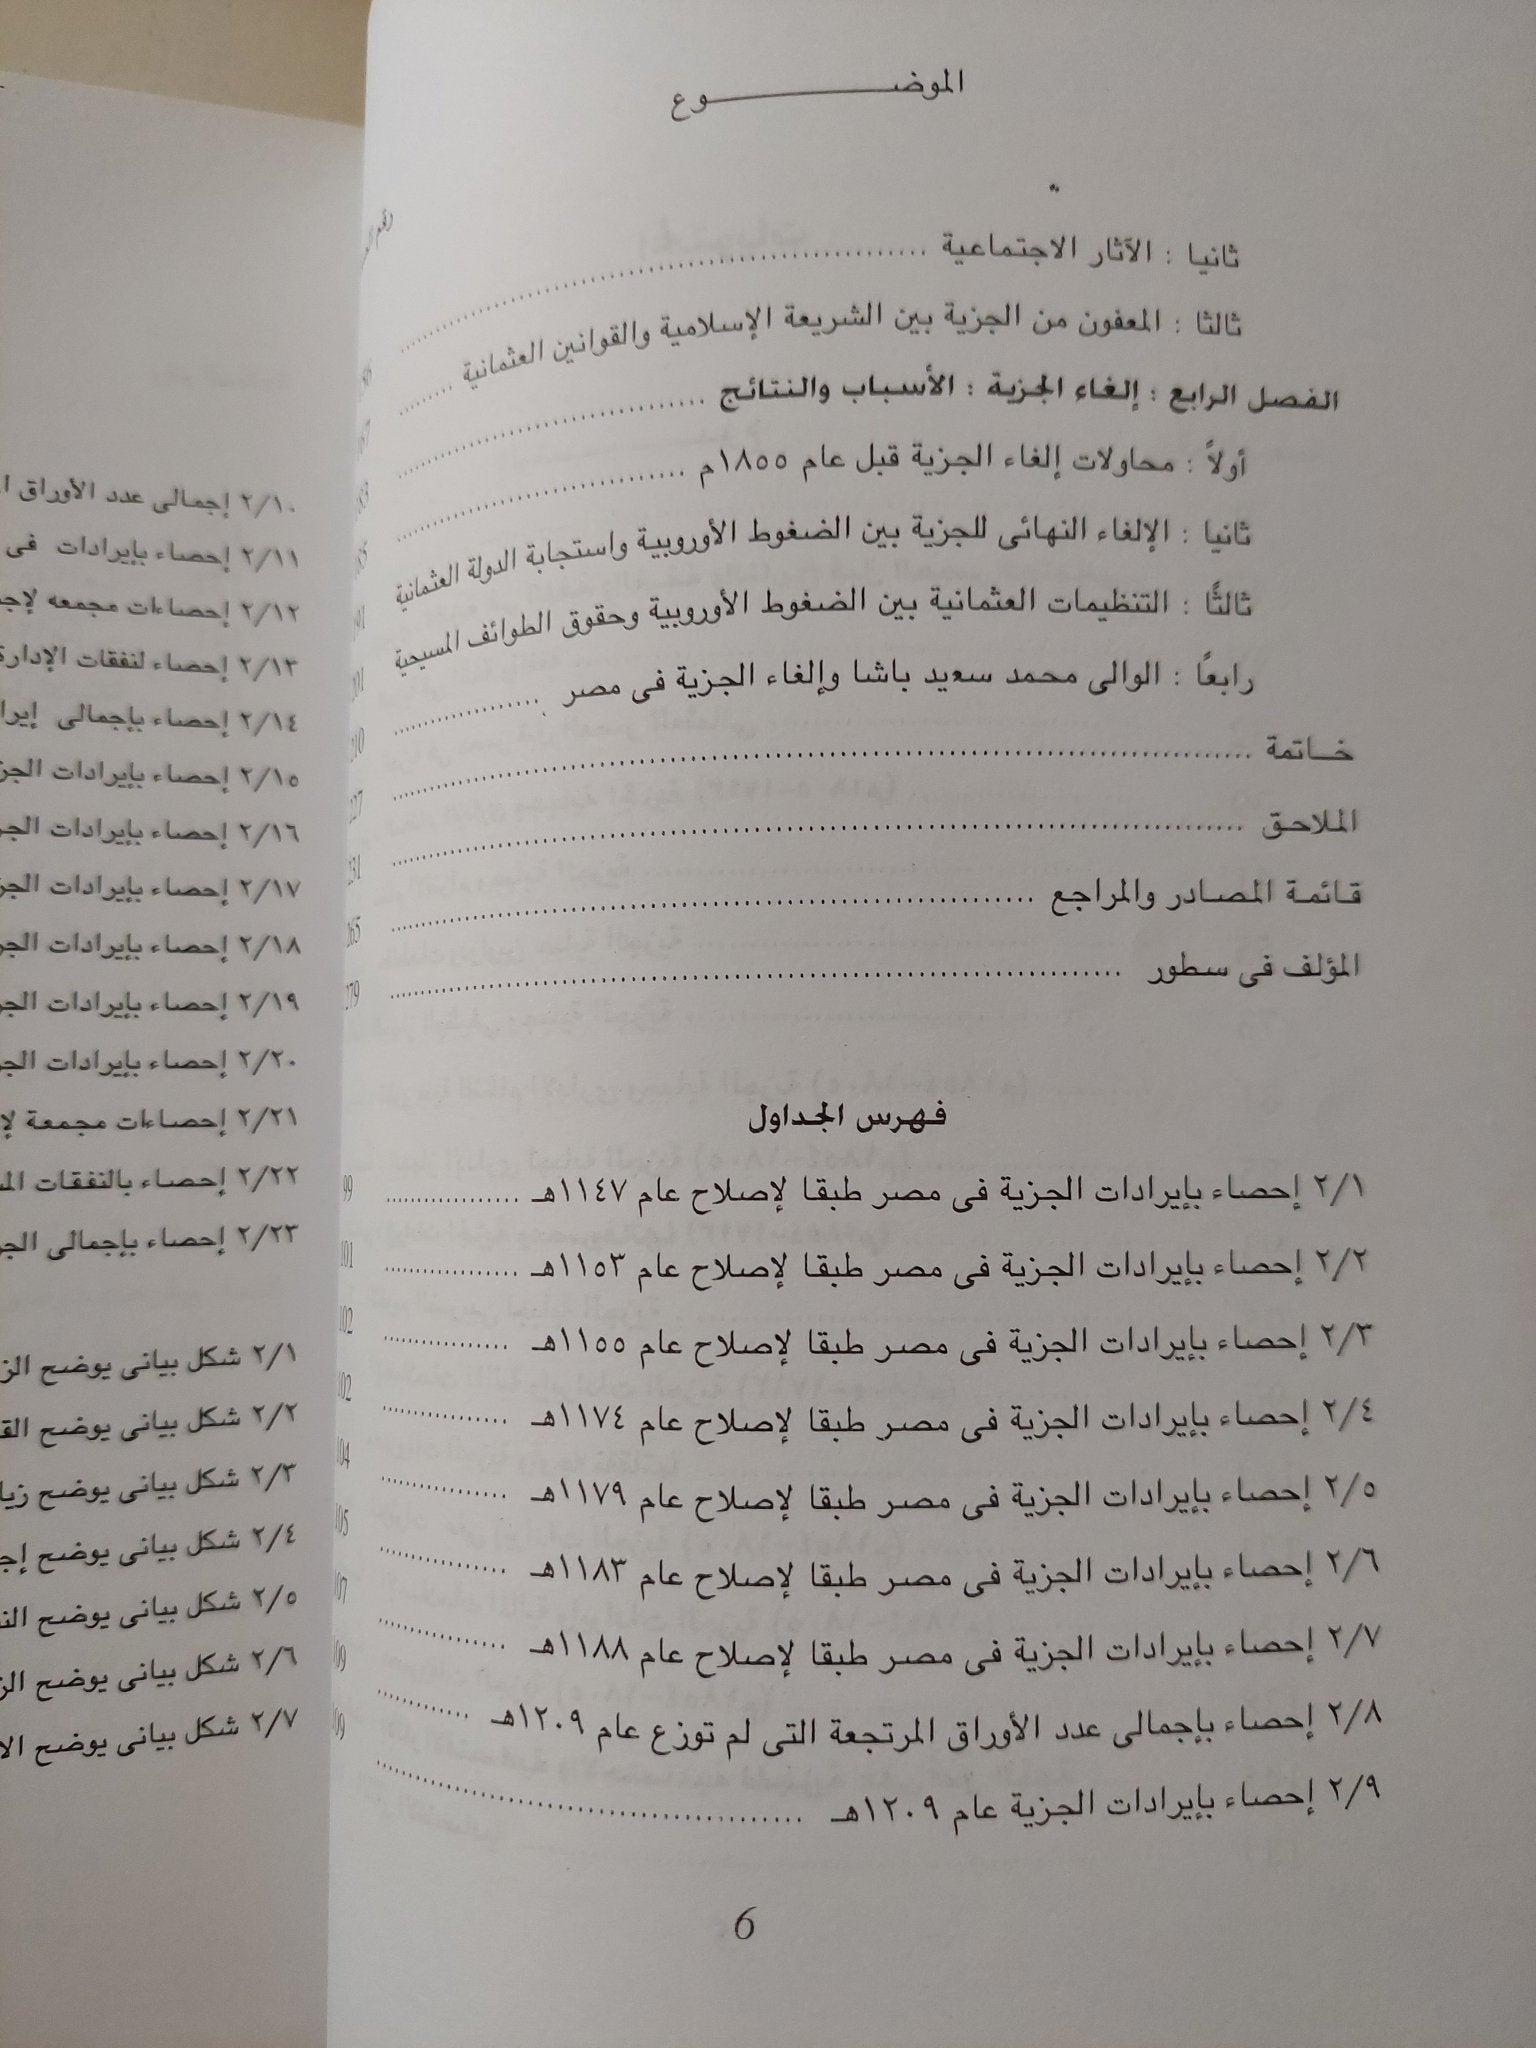 الموضوع
ثانيا : الآثار الاجتماعية
ثالثا : المعفون من الجزية بين الشريعة الإسلامية والقوانين العثمانية
الفصل الرابع : إلغاء الجزية : الأسباب والنتائج
أولاً : محاولات إلغاء الجزية قبل عام ١٨٥٥م
ثانيا : الإلغاء النهائى للجزية بين الضغوط الأوروبية واستجابة الدولة العثمانية
ثالثًا : التنظيمات العثمانية بين الضغوط الأوروبية وحقوق الطوائف المسيحية
رابعًا : الوالى محمد سعيد باشا وإلغاء الجزية فى مصر
خاتمة
الملاحق
قائمة المصادر والمراجع
المؤلف فى سطور
فهرس الجداول
٢/١ إحصاء بإيرادات الجزية فى مصر طبقا لإصلاح عام ١١٤٧هـ 99
٢/٢ إحصاء بإيرادات الجزية فى مصر طبقا لإصلاح عام ١١٥٣هـ 101
٢/٣ إحصاء بإيرادات الجزية فى مصر طبقا لإصلاح عام ١١٥٥هـ 102
٢/٤ إحصاء بإيرادات الجزية فى مصر طبقا لإصلاح عام ١١٧٤هـ 102
٢/٥ إحصاء بإيرادات الجزية فى مصر طبقا لإصلاح عام ١١٧٩هـ 104
٢/٦ إحصاء بإيرادات الجزية فى مصر طبقا لإصلاح عام ١١٨٣هـ 105
٢/٧ إحصاء بإيرادات الجزية فى مصر طبقا لإصلاح عام ١١٨٨هـ
٢/٨ إحصاء بإجمالى عدد الأوراق المرتجعة التى لم توزع عام ١٢٠٩هـ
٢/٩ إحصاء بإيرادات الجزية عام ١٢٠٩هـ
6
٢/١٠ إجمالى عدد الأوراق
٢/١١ إحصاء بإيرادات فى
٢/١٢ إحصاءات مجمعه
٢/١٣ إحصاء لنفقات الإدارة
٢/١٤ إحصاء بإجمالى
٢/١٥ إحصاء بإيرادات
٢/١٦ إحصاء بإيرادات
٢/١٧ إحصاء بإيرادات
٢/١٨ إحصاء بإيرادات
٢/١٩ إحصاء بإيرادات
٢/٢٠ إحصاء بإيرادات
٢/٢١ إحصاءات مجمعة
٢/٢٢ إحصاء بالنفقات
٢/٢٣ إحصاء بإجمالى
٢/١ شكل بيانى يوضح
٢/٢ شكل بيانى يوضح
٢/٣ شكل بيانى يوضح
٢/٤ شكل بيانى يوضح
٢/٥ شكل بيانى يوضح
٢/٦ شكل بيانى يوضح
٢/٧ شكل بيانى يوضح